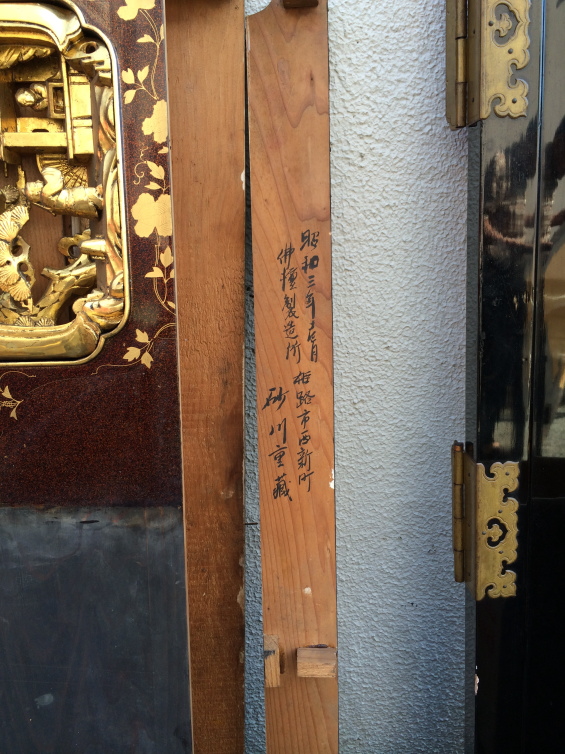 昭和三年七月
姫路市西新町
佛壇製造所
砂川重藏